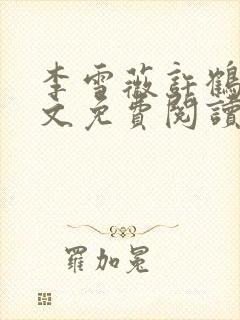 李雪薇許鶴
文免費閱讀
羅加冕